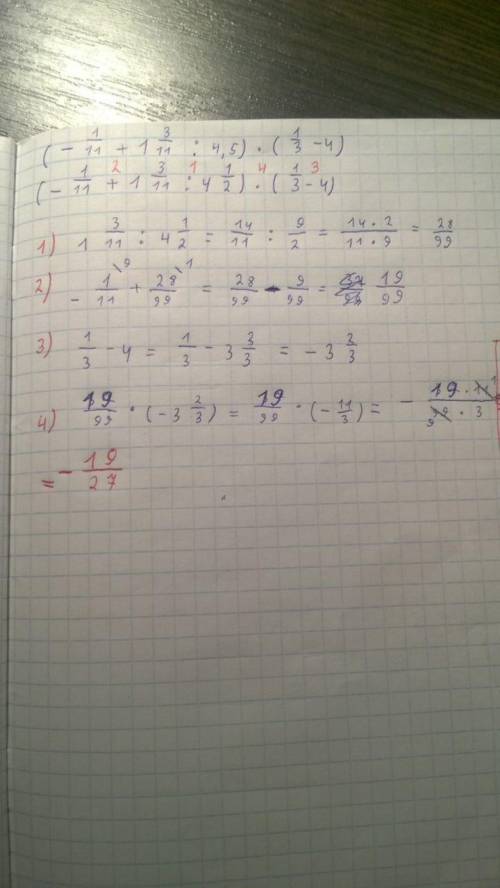 (- 1/11 + 1 3/11 : 4,5) · (1/3 - 4)
2 1 4 3
(- 1/11 + 1 3/11 : 4 1/2) · (1/3 - 4)
1) 1 3/11 : 4 1/2 = 14/11 : 9/2 = 14 · 2/11 · 9 = 28/99
2) - 1/11 \9 + 28/99 \1 = 28/99 - 9/99 = 19/99
3) 1/3 - 4 = 1/3 - 3 3/3 = - 3 2/3
4) 19/99 · (- 3 2/3) = 19/99 · (- 11/3) = - 19 · 11 1/9 99 · 3
= - 19/27